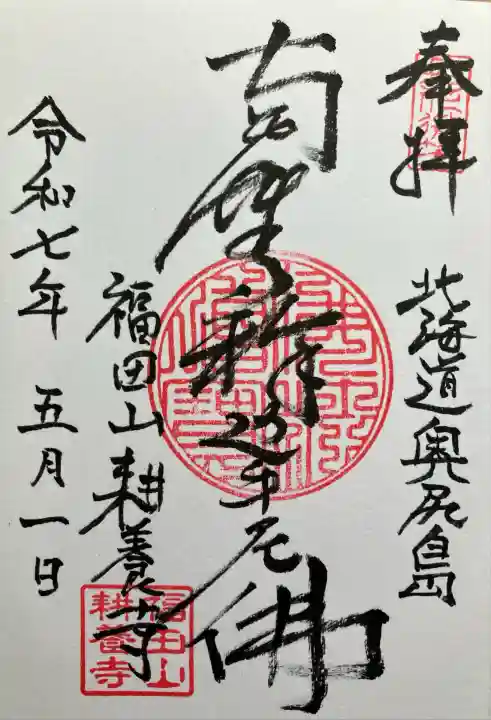 奉拝
北海道奥尻島
南無釈迦牟尼佛
福田山耕養寺
令和七年 五月一日
福田山
耕養寺